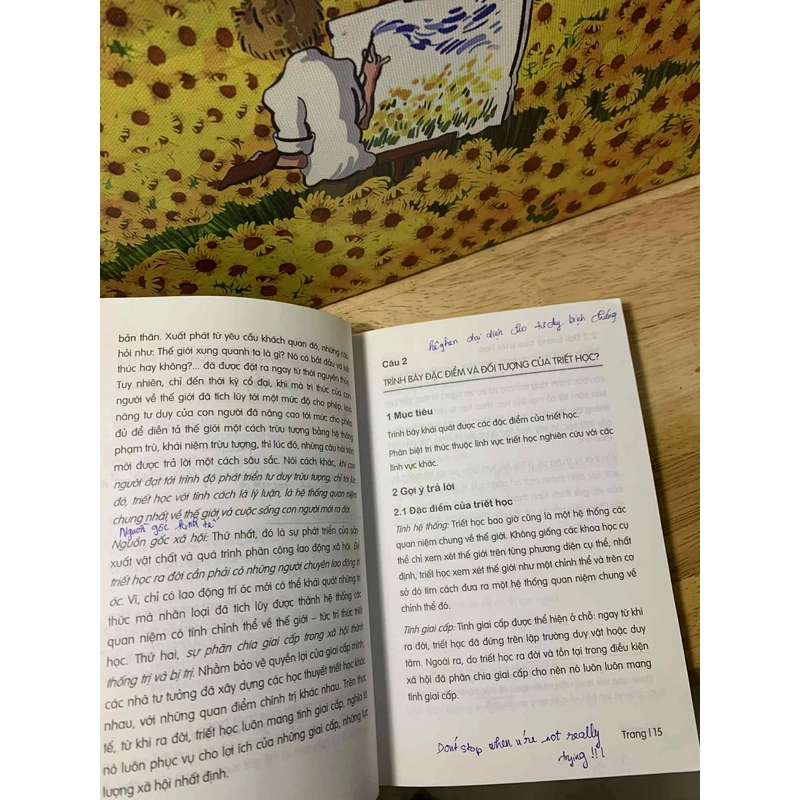 bản thân. Xuất phát từ yêu cầu khách quan đó, những câu
hỏi như: Thế giới xung quanh ta là gì? Nó có bắt đầu và kết
thúc hay không?... đã được đặt ra ngay từ thời nguyên thủy.
Tuy nhiên, chỉ đến thời kỳ cổ đại, khi mà tri thức của con
người về thế giới đã tích lũy tới một mức độ cho phép, khả
năng tư duy của con người đã nâng cao tới mức cho phép
đủ để diễn tả thế giới một cách trừu tượng bằng hệ thống
phạm trù, khái niệm trừu tượng, thì lúc đó, những câu hỏi trên
mới được trả lời một cách sâu sắc. Nói cách khác, khi con
người đạt tới trình độ phát triển tư duy trừu tượng, chỉ tới lúc
đó, triết học với tính cách là lý luận, là hệ thống quan niệm
chung nhất về thế giới và cuộc sống con người mới ra đời.
Nguồn gốc kinh tế
Nguồn gốc xã hội: Thứ nhất, đó là sự phát triển của sản
xuất vật chất và quá trình phân công lao động xã hội. Để
triết học ra đời cần phải có những người chuyên lao động trí
óc. Vì, chỉ có lao động trí óc mới có thể khái quát những tri
thức mà nhân loại đã tích lũy được thành hệ thống các
quan niệm có tính chỉnh thể về thế giới – tức tri thức triết
học. Thứ hai, sự phân chia giai cấp trong xã hội thành
thống trị và bị trị. Nhằm bảo vệ quyền lợi của giai cấp mình,
các nhà tư tưởng đã xây dựng các học thuyết triết học khác
nhau, với những quan điểm chính trị khác nhau. Trên thực
tế, từ khi ra đời, triết học luôn mang tính giai cấp, nghĩa là
nó luôn phục vụ cho lợi ích của những giai cấp, những lực
lượng xã hội nhất định.
Hêghen đại diện cho tư duy biện chứng
Câu 2
TRÌNH BÀY ĐẶC ĐIỂM VÀ ĐỐI TƯỢNG CỦA TRIẾT HỌC?
1 Mục tiêu
Trình bày khái quát được các đặc điểm của triết học.
Phân biệt tri thức thuộc lĩnh vực triết học nghiên cứu với các
lĩnh vực khác.
2 Gợi ý trả lời
2.1 Đặc điểm của triết học
Tính hệ thống: Triết học bao giờ cũng là một hệ thống các
quan niệm chung về thế giới. Không giống các khoa học cụ
thể chỉ xem xét thế giới trên từng phương diện cụ thể, nhất
định, triết học xem xét thế giới như một chỉnh thể và trên cơ
sở đó tìm cách đưa ra một hệ thống quan niệm chung về
chỉnh thể đó.
Tính giai cấp: Tính giai cấp được thể hiện ở chỗ: ngay từ khi
ra đời, triết học đã đứng trên lập trường duy vật hoặc duy
tâm. Ngoài ra, do triết học ra đời và tồn tại trong điều kiện
xã hội đã phân chia giai cấp cho nên nó luôn luôn mang
tính giai cấp.
Don't stop when u're not really
trying!!!
Trang | 15